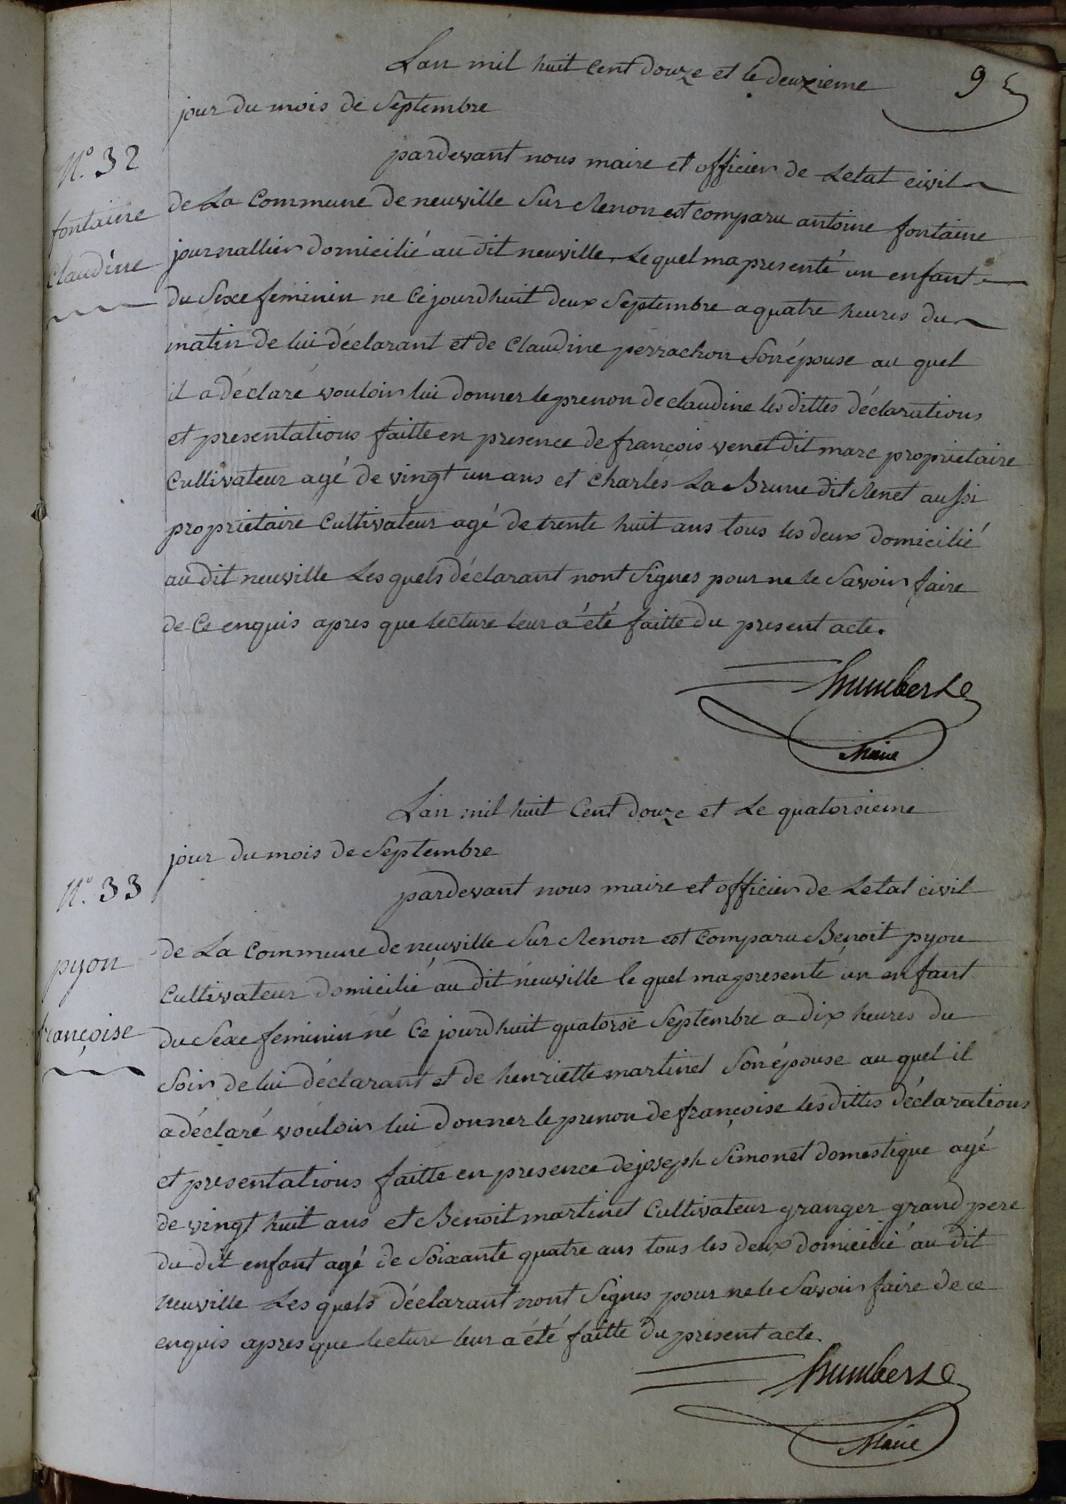 9
L'an mil huit cent douze et le deuxieme
jour du mois de Septembre
N.° 32
fontaine
Claudine
pardevant nous maire et officier de Letat civil
de La Commune de neuville Sur Renon est comparu antoine fontaine
journallier domicilié au dit neuville Lequel ma presenté un enfant
du Sexe feminin ne ce jourdhuit deux Septembre a quatre heures du
matin de lui déclarant et de Claudine perrachon Son épouse au quel
il a déclaré vouloir lui donner le prenon de claudine les dittes déclarations
et presentations faitte en presence de françois venet dit marc proprietaire
Cultivateur agé de vingt un ans et Charles La Brune dit Renet aussi
proprietaire Cultivateur agé de trente huit ans tous les deux domicilié
au dit neuville Les quels déclarant nont Signes pour ne le Savoir faire
de Ce enquis apres que lecture leur a été faitte du present acte.
humbert
Maire
L'an mil huit Cent douze et Le quatorsieme
jour du mois de Septembre
N.° 33
pyon
françoise
pardevant nous maire et officier de Letat civil
de La Commune de neuville Sur Renon est Comparu Benoit pyon
Cultivateur domicilié au dit neuville le quel ma presenté un enfant
du Sexe feminin né Ce jourdhuit quatorse Septembre a dix heures du
Soir de lui déclarant et de henriette martinet Son épouse au quel il
a déclaré vouloir lui donner le prenon de françoise les dittes déclarations
et presentations faitte en presence de joseph Simonet domestique agé
de vingt huit ans et Benoit martinet Cultivateur granger grand pere
du dit enfant agé de Soixante quatre ans tous les deux domicilié au dit
neuville Les quels déclarant nont Signes pour ne le Savoir faire de ce
enquis apres que lecture leur a été faitte du present acte.
humbert
Maire